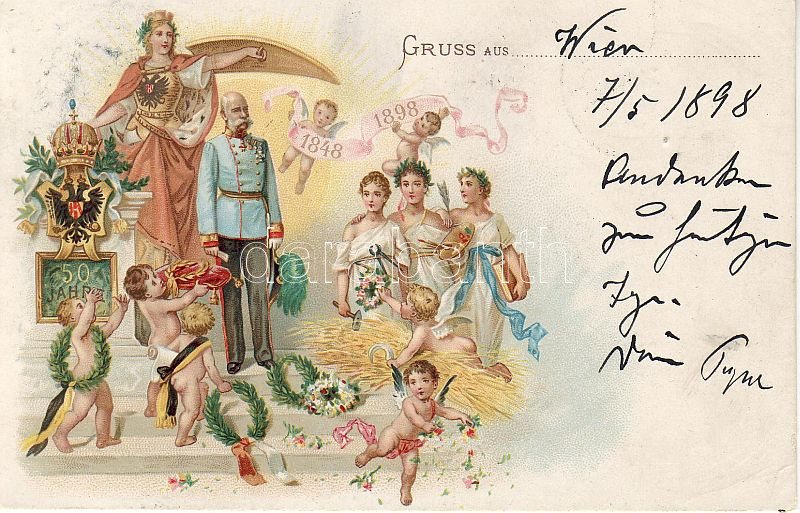 GRUSS AUS Wien
7/5 1898
1848
1898
Andenken
zum heutigen
50
JAHRE
darabanth